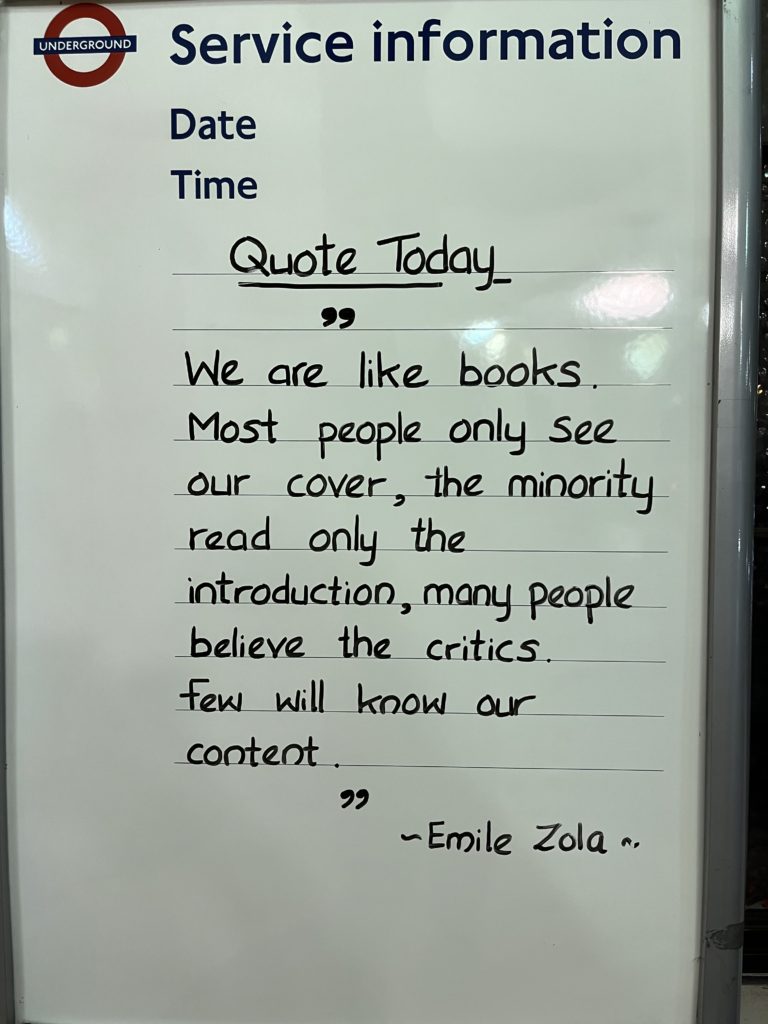 UNDERGROUND
Service information
Date
Time
Quote Today
”
We are like books.
Most people only see
our cover, the minority
read only the
introduction, many people
believe the critics.
few will know our
content.
”
~Emile Zola~.